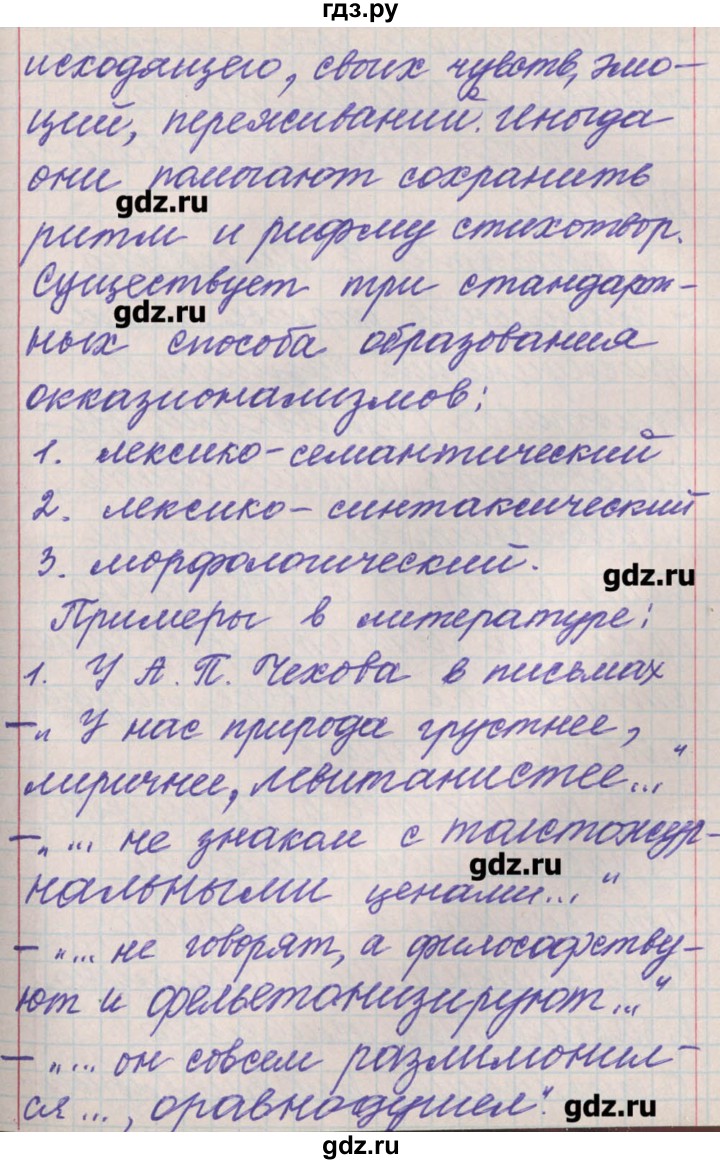 гдз.ру
исходящего, своих чувств, эмо-
ций, переживаний. Иногда
они помогают сохранить
gdz.ru
ритм и рифму стихотвор.
Существует три стандарт-
gdz.ru
ных способа образования
окказионализмов:
1. лексико-семантический
2. лексико-синтаксический
3. морфологический.
gdz.ru
Примеры в литературе:
1. У А. П. Чехова в письмах
– „У нас природа грустнее,
лиричнее, левитанистее..."
– „... не знаком с толстожур-
gdz.ru
нальными ценами..."
– „... не говорят, а философству-
ют и фельетонизируют..."
– „... он совсем разлимонил-
ся ..., оравнодушел".
gdz.ru
gdz.ru